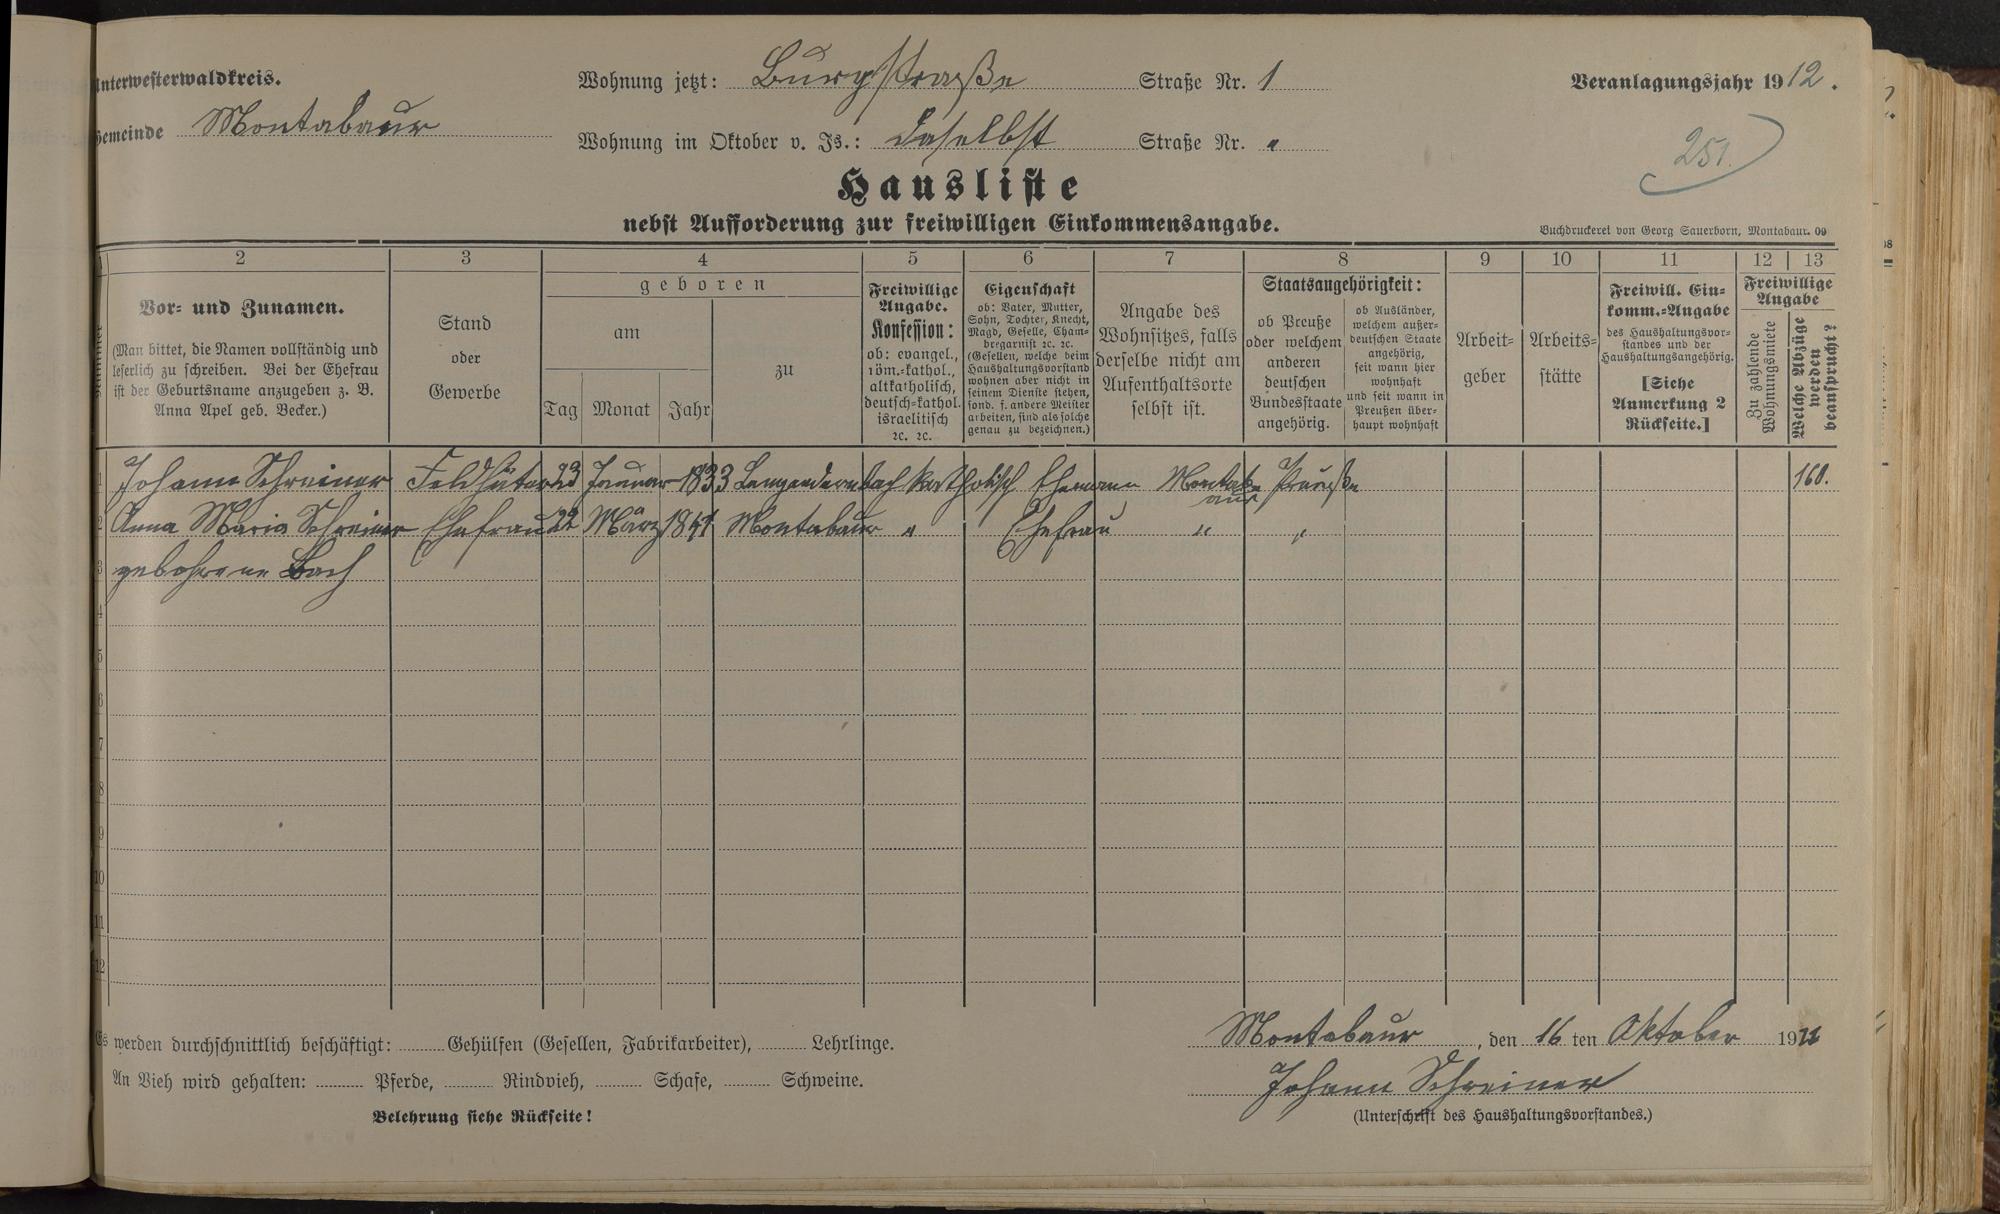 Unterwesterwaldkreis.
Gemeinde Montabaur
Wohnung jetzt: Burgstraße Straße Nr. 1
Wohnung im Oktober v. Js.: Daselbst Straße Nr. "
Veranlagungsjahr 1912.
251.
Hausliste
nebst Aufforderung zur freiwilligen Einkommensangabe.
Buchdruckerei von Georg Sauerborn, Montabaur. 09
1 2 3 4 5 6 7 8 9 10 11 12 13
Nummer
Vor- und Zunamen.
(Man bittet, die Namen vollständig und
leserlich zu schreiben. Bei der Ehefrau
ist der Geburtsname anzugeben z. B.
Anna Apel geb. Becker.)
Stand
oder
Gewerbe
geboren
am
Tag Monat Jahr
zu
Freiwillige
Angabe.
Konfession:
ob: evangel.,
röm.-kathol.,
altkatholisch,
deutsch-kathol.
israelitisch
ꝛc. ꝛc.
Eigenschaft
ob: Vater, Mutter,
Sohn, Tochter, Knecht,
Magd, Geselle, Cham-
bregarnist ꝛc. ꝛc.
(Gesellen, welche beim
Haushaltungsvorstand
wohnen aber nicht in
seinem Dienste stehen,
sond. f. andere Meister
arbeiten, sind als solche
genau zu bezeichnen.)
Angabe des
Wohnsitzes, falls
derselbe nicht am
Aufenthaltsorte
selbst ist.
Staatsangehörigkeit:
ob Preuße
oder welchem
anderen
deutschen
Bundesstaate
angehörig.
ob Ausländer,
welchem außer-
deutschen Staate
angehörig,
seit wann hier
wohnhaft
und seit wann in
Preußen über-
haupt wohnhaft
Arbeit-
geber
Arbeits-
stätte
Freiwill. Ein-
komm.-Angabe
des Haushaltungsvor-
standes und der
Haushaltungsangehörig.
[Siehe
Anmerkung 2
Rückseite.]
Freiwillige
Angabe
Zu zahlende
Wohnungsmiete
Welche Abzüge
werden
beansprucht?
1 Johann Schreiner Feldhüter 23 Januar 1833 Langendernbach Katholisch Ehemann Montabaur Preuße 160.
2 Anna Maria Schreiner Ehefrau 22 März 1841 Montabaur " Ehefrau " "
3 gebohrene Bach
4
5
6
7
8
9
10
11
12
Es werden durchschnittlich beschäftigt: Gehülfen (Gesellen, Fabrikarbeiter), Lehrlinge.
An Vieh wird gehalten: Pferde, Rindvieh, Schafe, Schweine.
Belehrung siehe Rückseite!
Montabaur, den 16 ten Oktober 1911
Johann Schreiner
(Unterschrift des Haushaltungsvorstandes.)